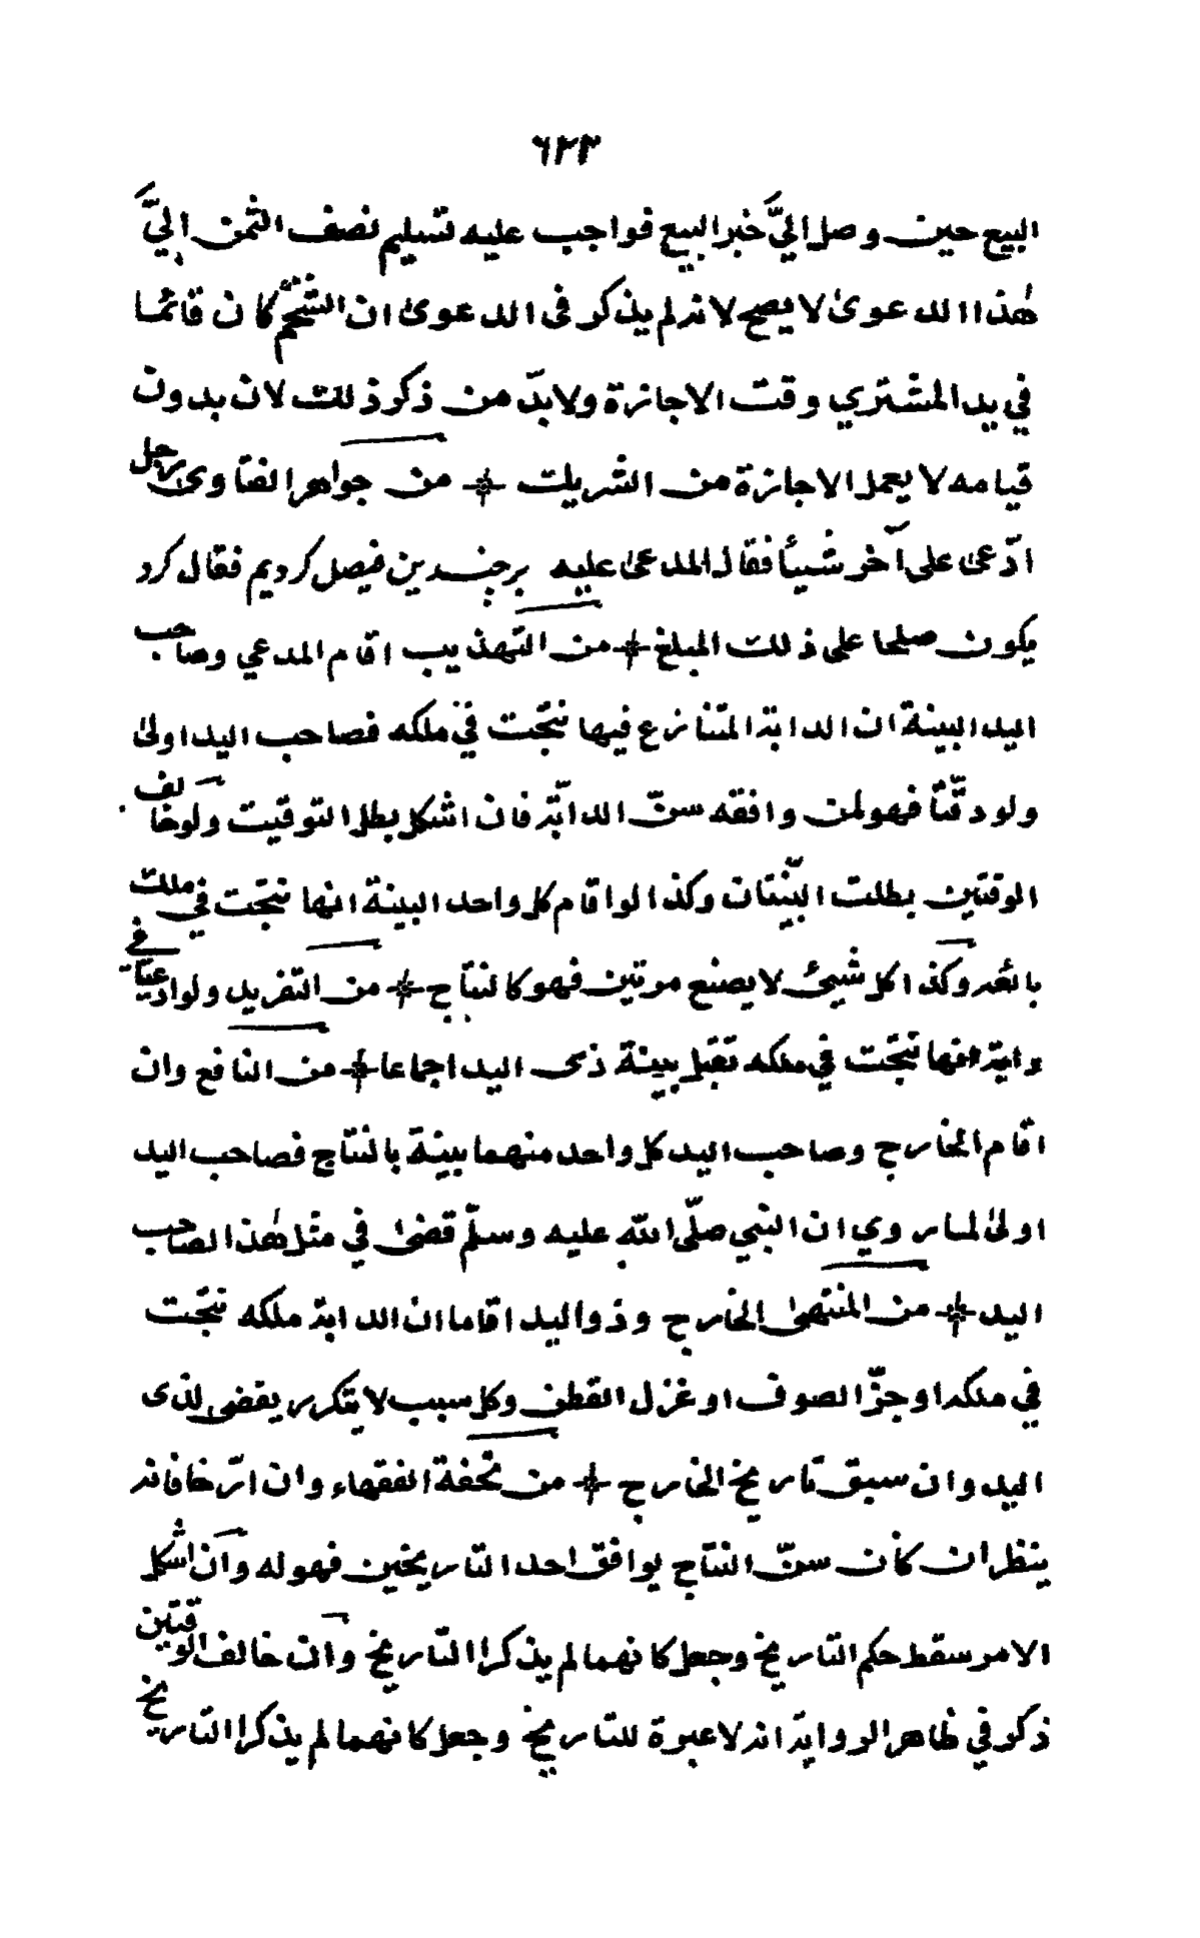 ٦٢٣
البيع حين وصل اليَّ خبر البيع فواجب عليه تسليم نصف الثمن اليَّ
هٰذا الدعوىٰ لا يصح لانه لم يذكر فى الدعوىٰ ان الشحم كان قائما
في يد المشتري وقت الاجازة ولا بدّ من ذكر ذلك لان بدون
قيامه لا يعمل الاجازة من الشريك ❊ من جواهر الفتاوى رجل
ادّعىٰ على آخر شيئًا فقال المدعىٰ عليه برچندين فيصل كرديم فقال كرد
يكون صلحا على ذلك المبلغ ❊ من التهذيب اقام المدعي وصاحب
اليد البينة ان الدابة المتنازع فيها نتّجت في ملكه فصاحب اليد اولىٰ
ولو وقّتا فهو لمن وافقه سنّ الدابّة فان اشكل بطل التوقيت ولو خالف
الوقتين بطلت البيّنتان وكذا لو اقام كل واحد البينة انها نتّجت في ملك
بائعه وكذا كل شيئ لا يصنع مرتين فهو كالنتاج ❊ من التفريد ولو ادعيا في
دابة انها نتّجت في ملكه تقبل بينة ذى اليد اجماعا ❊ من النافع وان
اقام الخارج وصاحب اليد كل واحد منهما بينة بالنتاج فصاحب اليد
اولىٰ لما روي ان النبي صلّى الله عليه وسلّم قضىٰ في مثل هٰذا لصاحب
اليد ❊ من المنتهىٰ الخارج وذو اليد اقاما ان الدابة ملكه نتّجت
في ملكه او جزّ الصوف او غزل القطن وكل سبب لا يتكرر يقضى لذى
اليد وان سبق تاريخ الخارج ❊ من تحفة الفقهاء وان ارّخا فانه
ينظر ان كان سنّ النتاج يوافق احد التاريخين فهو له وان اشكل
الامر سقط حكم التاريخ وجعل كانهما لم يذكرا التاريخ وان خالف الوقتين
ذكر في ظاهر الرواية انه لا عبرة للتاريخ وجعل كانهما لم يذكرا التاريخ